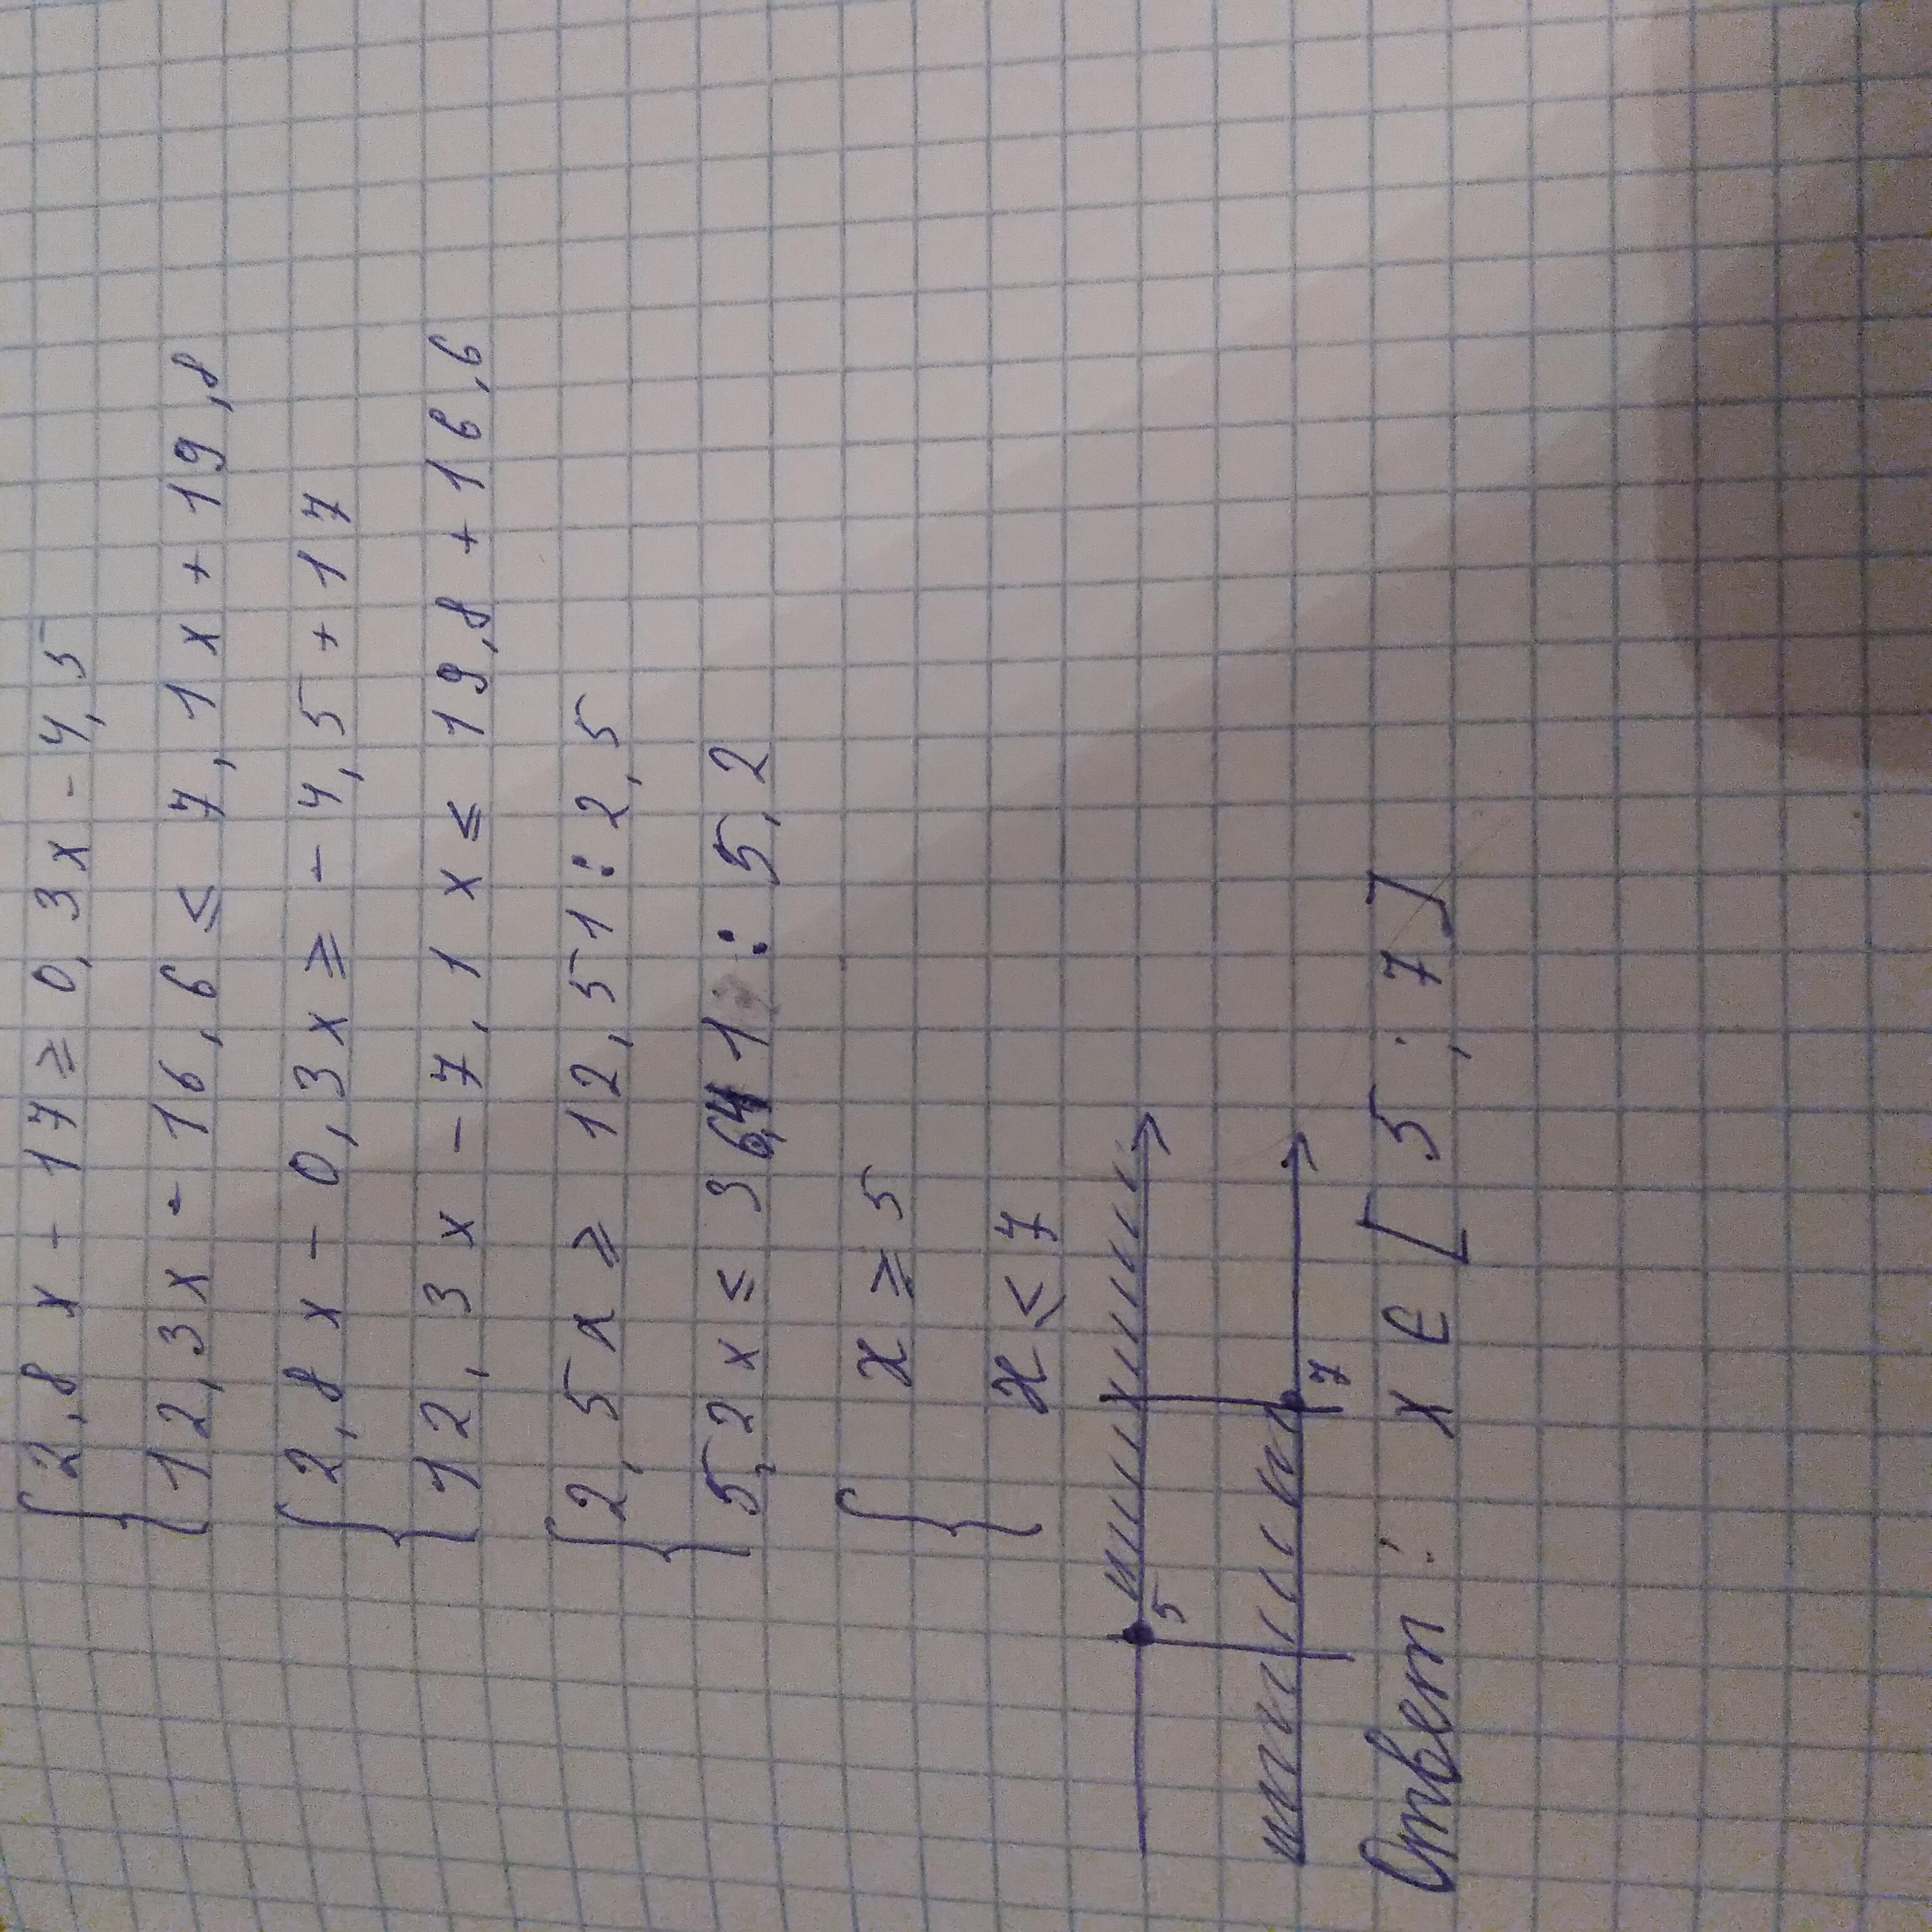 { 2,8 x - 17 ≥ 0,3x - 4,5
12,3x - 16,6 ≤ 7,1x + 19,8
{ 2,8x - 0,3x ≥ - 4,5 + 17
12,3x - 7,1x ≤ 19,8 + 16,6
{ 2,5x ≥ 12,5 1: 2,5
5,2x ≤ 36,4 1: 5,2
{ x ≥ 5
x ≤ 7
5
7
Ответ: x ∈ [5; 7]